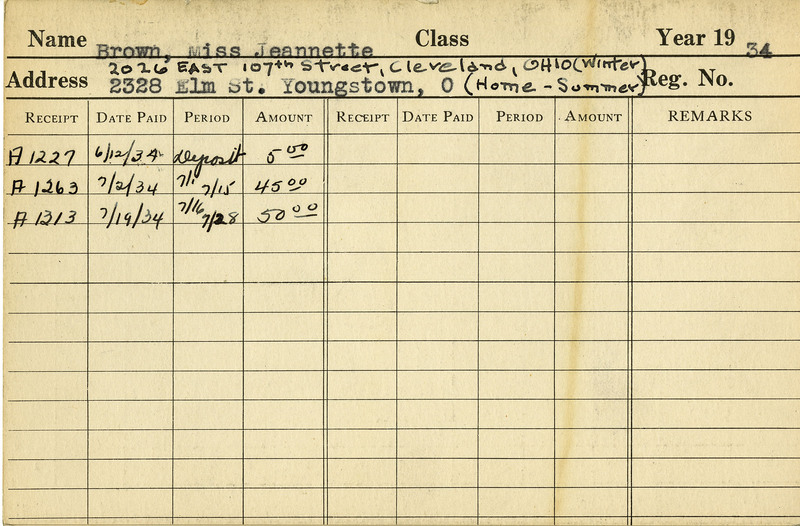 Name Brown, Miss Jeannette Class Year 19 34
2026 EAST 107th Street, Cleveland, OHIO (Winter)
Address 2328 Elm St. Youngstown, O (Home - Summer) Reg. No.
RECEIPT DATE PAID PERIOD AMOUNT RECEIPT DATE PAID PERIOD AMOUNT REMARKS
A 1227 6/12/34 Deposit 5 00
A 1263 7/2/34 7/1 7/15 45 00
A 1313 7/19/34 7/16 7/28 50 00